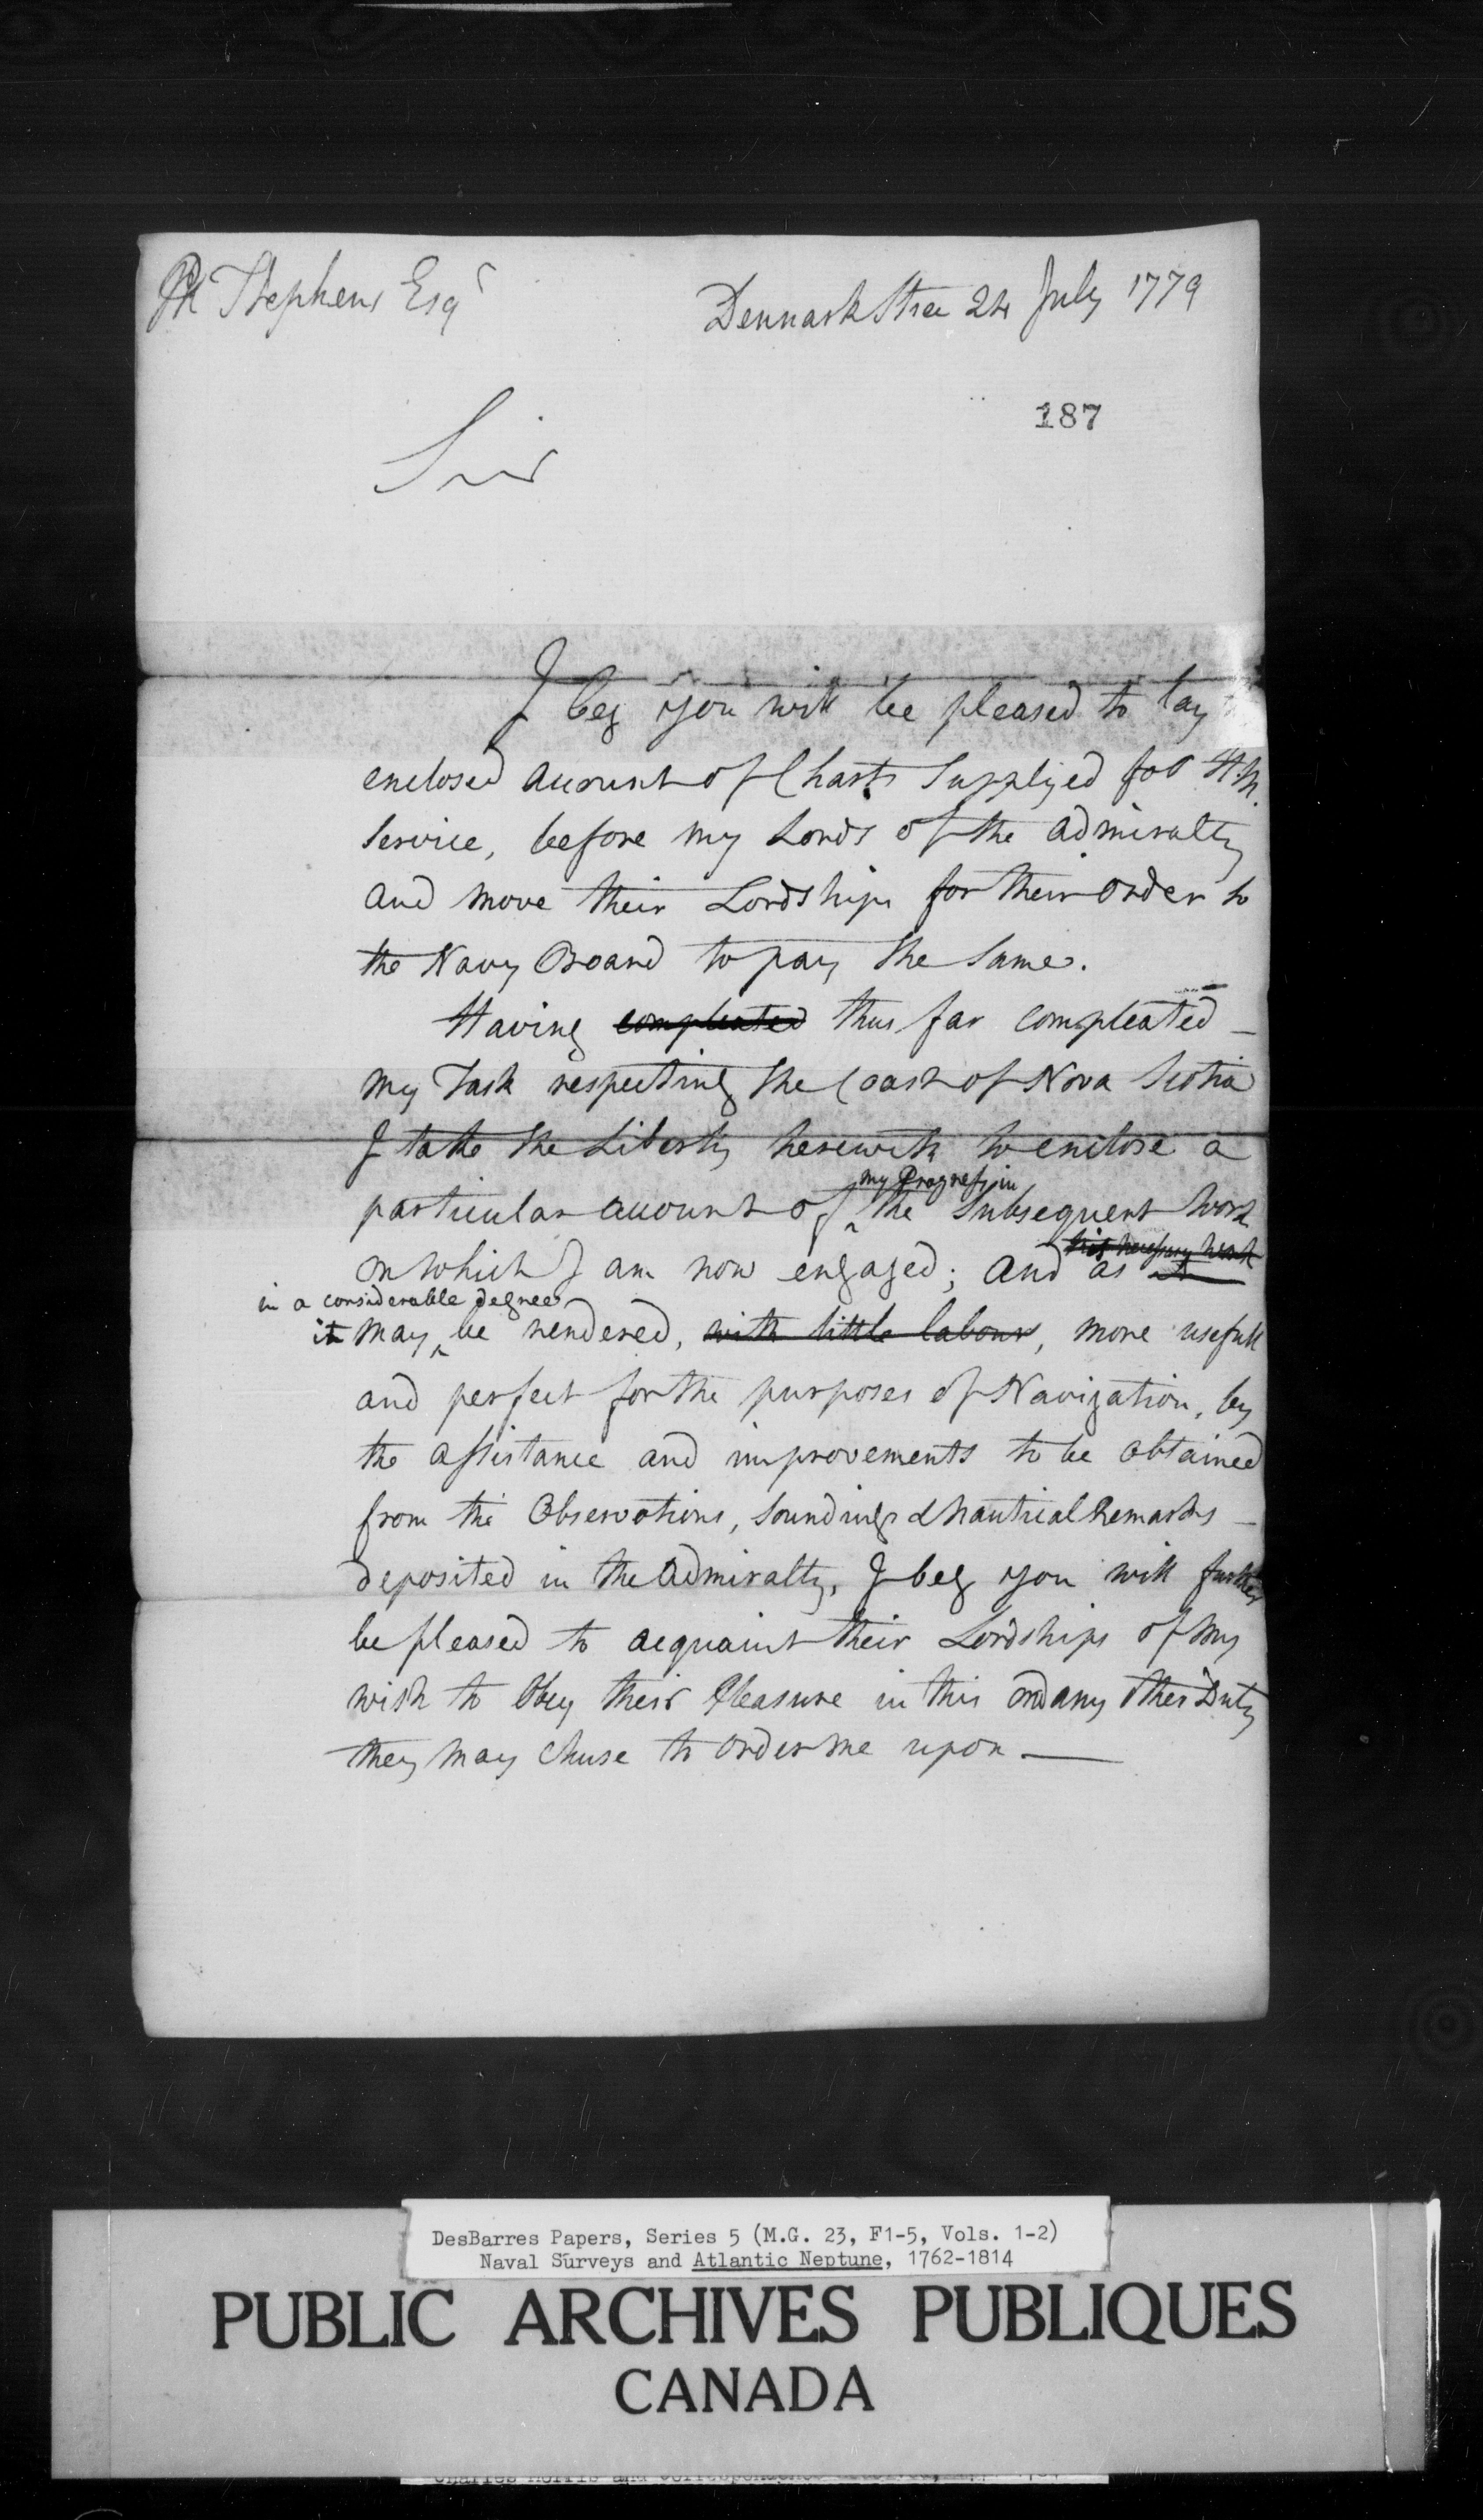 Ph Stephens Esqr
Denmark Stree 24 July 1779
187
Sir
I beg you will be pleased to lay
enclosed account of Charts Supplyed for H.M.
Service, before my Lords of the Admiralty
and move their Lordships for their Order to
the Navy Board to pay the Same.
Having compleated thus far compleated
my Task respecting the Coast of Nova Scotia
I take the Liberty herewith to enclose a
my Progress in
particular account of the Subsequent Work
this necessary work
on which I am now engaged; and as it
in a considerable degree
it may be rendered, with little labour, more usefull
and perfect for the purposes of Navigation, by
the assistance and improvements to be obtained
from the Observations, Soundings & Nautical Remarks
deposited in the Admiralty, I beg you will further
be pleased to acquaint their Lordships of my
wish to Obey their Pleasure in this and any other Duty
they may chuse to order me upon —
DesBarres Papers, Series 5 (M.G. 23, F1-5, Vols. 1-2)
Naval Surveys and Atlantic Neptune, 1762-1814
PUBLIC ARCHIVES PUBLIQUES
CANADA